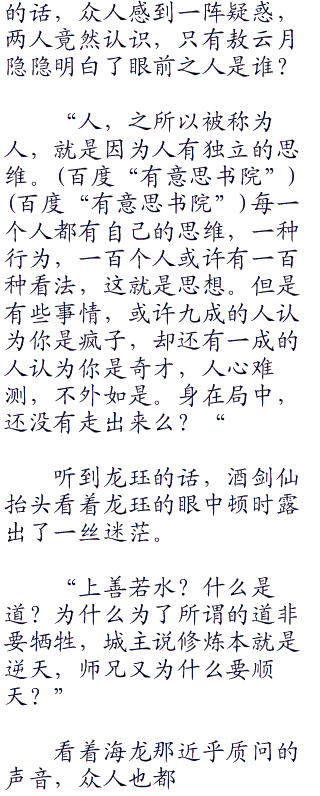 的话，众人感到一阵疑惑，
两人竟然认识，只有敖云月
隐隐明白了眼前之人是谁？
“人，之所以被称为
人，就是因为人有独立的思
维。(百度“有意思书院”)
(百度“有意思书院”)每一
个人都有自己的思维，一种
行为，一百个人或许有一百
种看法，这就是思想。但是
有些事情，或许九成的人认
为你是疯子，却还有一成的
人认为你是奇才，人心难
测，不外如是。身在局中，
还没有走出来么？“
听到龙珏的话，酒剑仙
抬头看着龙珏的眼中顿时露
出了一丝迷茫。
“上善若水？什么是
道？为什么为了所谓的道非
要牺牲，城主说修炼本就是
逆天，师兄又为什么要顺
天？”
看着海龙那近乎质问的
声音，众人也都